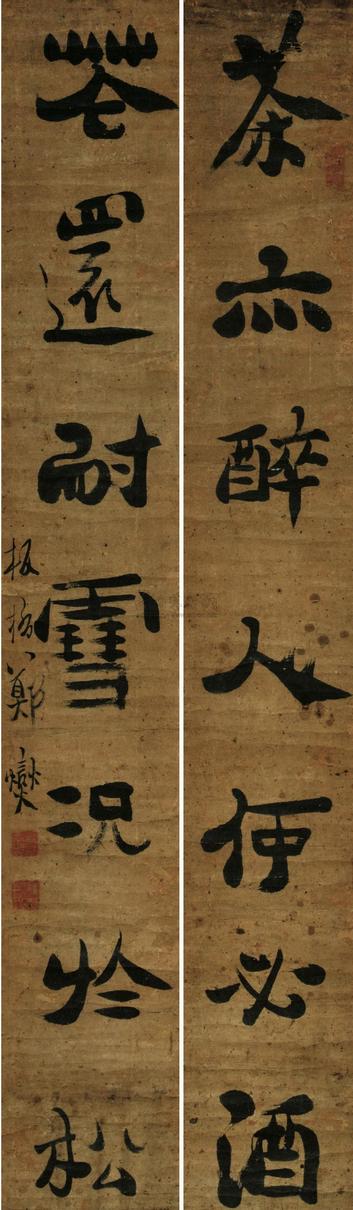 茶亦醉人何必酒
花還耐雪況於松
板橋鄭燮